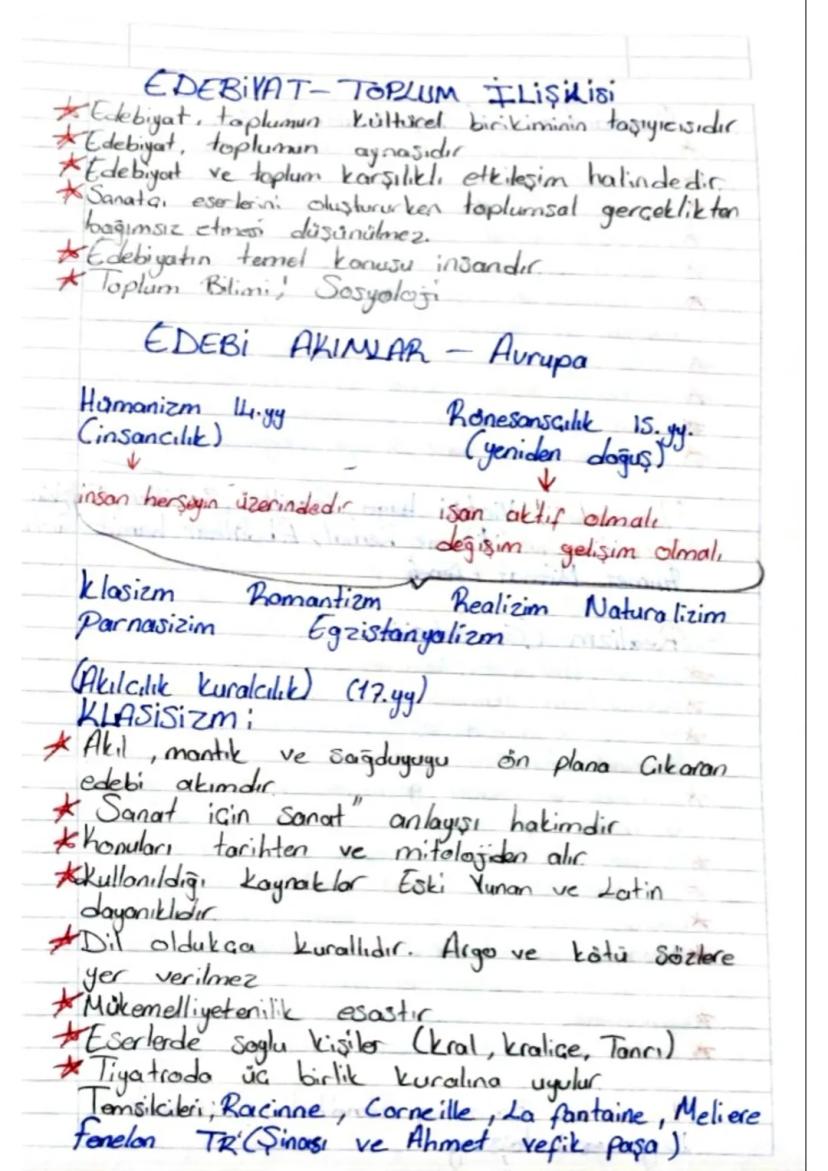 EDEBİYAT - TOPLUM İLİŞKİSİ
* Edebiyat, toplumun kültürel birikiminin taşıyıcısıdır
* Edebiyat, toplumun aynasıdır
* Edebiyat ve toplum karşılıklı etkileşim halindedir.
* Sanatçı eserlerini oluştururken toplumsal gerçeklikten
bağımsız etmesi düşünülmez.
* Edebiyatın temel konusu insandır
* Toplum Bilimi; Sosyoloji
EDEBİ AKIMLAR - Avrupa
Hümanizm 14.yy
(insancılık)
Rönesansçılık 15.yy.
(yeniden doğuş)
insan herşeyin üzerindedir
isan aktif olmalı
değişim gelişim olmalı
klasizm Romantizm Realizim Naturalizim
Parnasizim Egzistanyalizm
(Akılcılık kuralcılık) (17.yy)
KLASİSİZM:
* Akıl, mantık ve sağduyuyu ön plana çıkaran
edebi akımdır
* Sanat için sanat" anlayışı hakimdir
* konuları tarihten ve mitolojiden alır
* kullanıldığı kaynaklar Eski Yunan ve Latin
dayanıklıdır
* Dil oldukça kurallıdır. Argo ve kötü sözlere
yer verilmez
* Mükemelliyetenilik esastır
* Eserlerde soylu kişiler (kral, kraliçe, Tanrı)
* Tiyatroda üç birlik kuralına uyulur
Temsilcileri; Racinne, Corneille, La fantaine, Meliere
fenelon TR'(Şinasi ve Ahmet vefik paşa)